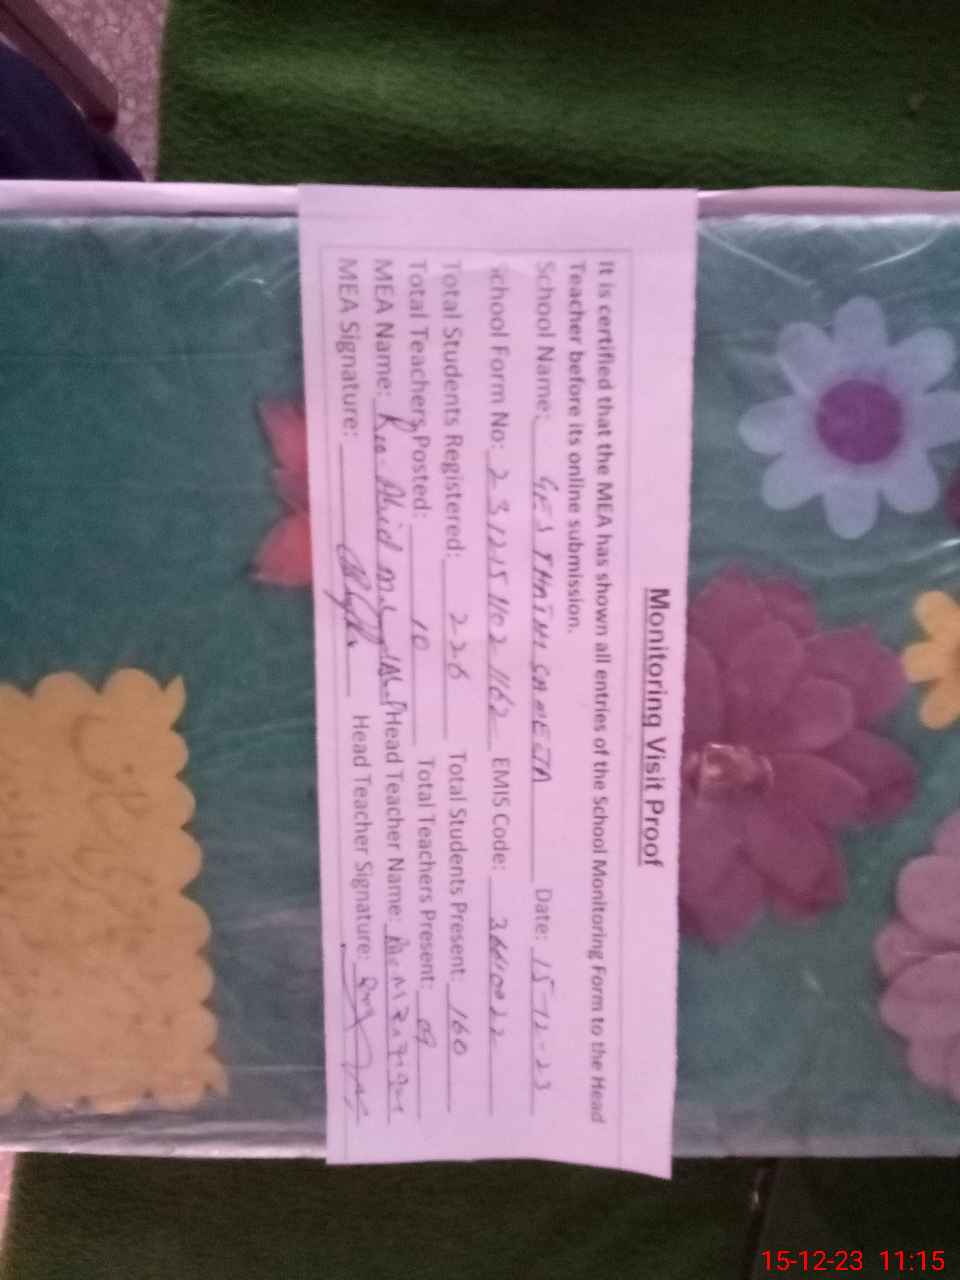 Monitoring Visit Proof
It is certified that the MEA has shown all entries of the School Monitoring Form to the Head
Teacher before its online submission.
School Name: GES Date: 15-12-23
School Form No: EMIS Code:
Total Students Registered: 226 Total Students Present: 160
Total Teachers Posted: 10 Total Teachers Present: 09
MEA Name: Head Teacher Name:
MEA Signature: Head Teacher Signature:
15-12-23 11:15